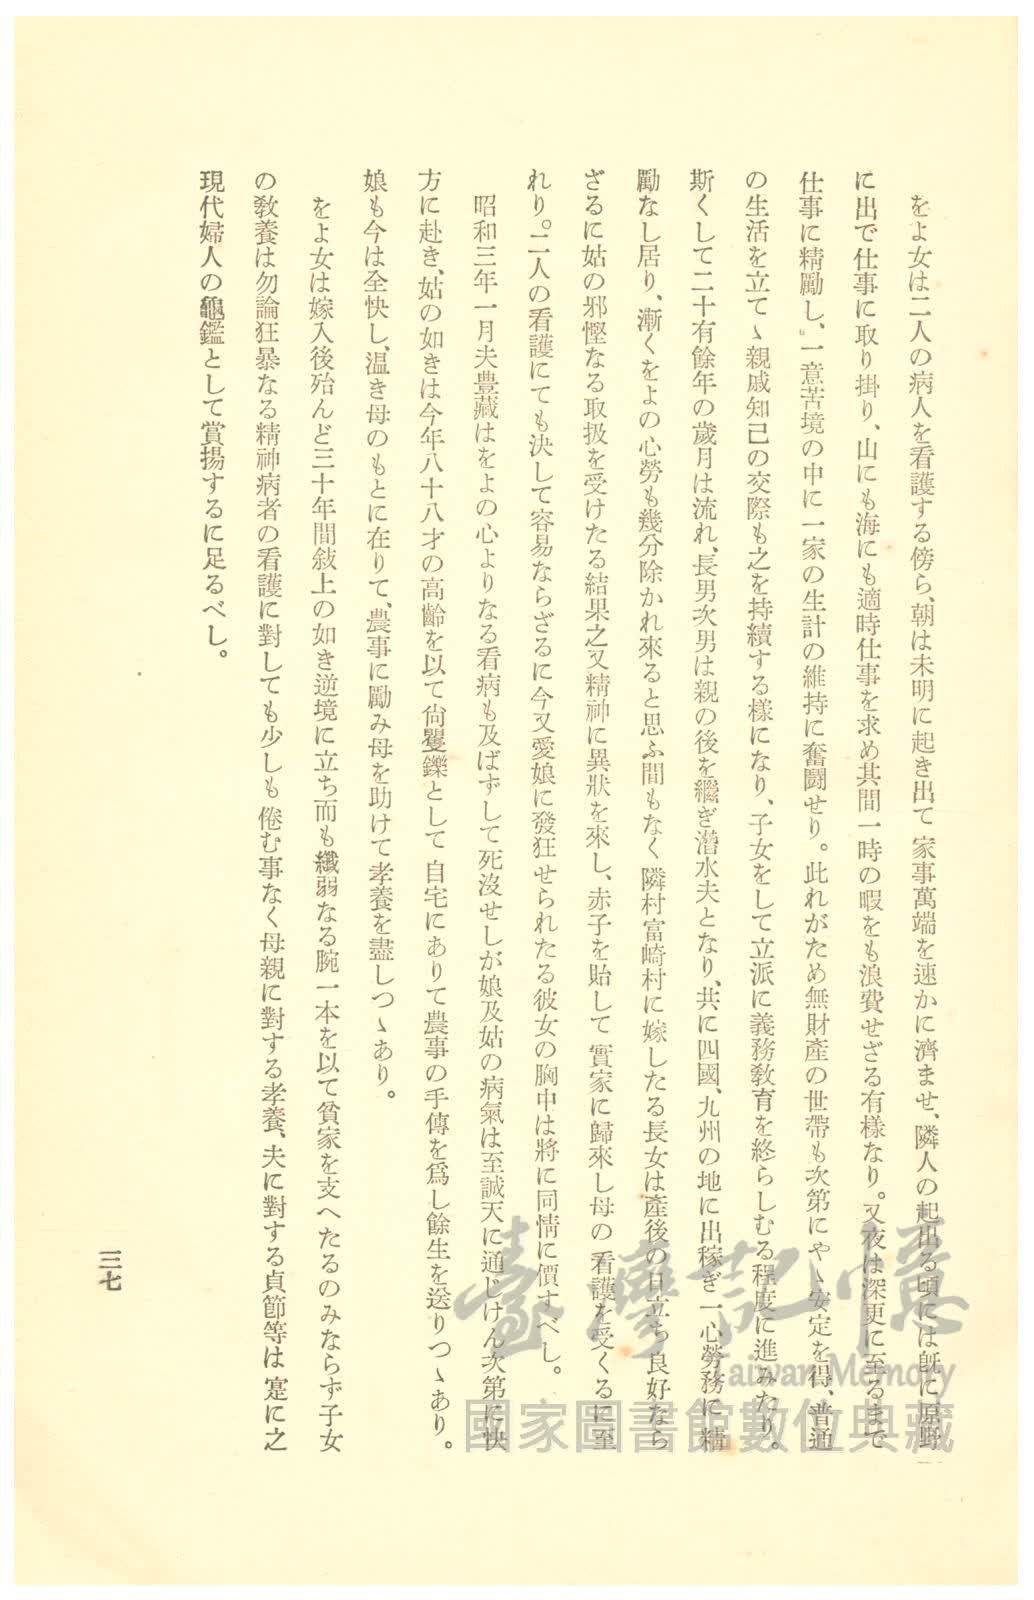 をよ女は二人の病人を看護する傍ら、朝は未明に起き出て家事萬端を速かに濟ませ、隣人の起出る頃には既に原野
に出で仕事に取り掛り、山にも海にも適時仕事を求め其間一時の暇をも浪費せざる有樣なり。又夜は深更に至るまで
仕事に精勵し、一意苦境の中に一家の生計の維持に奮鬪せり。此れがため無財產の世帶も次第にやゝ安定を得、普通
の生活を立てゝ親戚知己の交際も之を持續する樣になり、子女をして立派に義務敎育を終らしむる程度に進みたり。
斯くして二十有餘年の歲月は流れ、長男次男は親の後を繼ぎ潛水夫となり、共に四國、九州の地に出稼ぎ一心勞務に精
勵なし居り、漸くをよの心勞も幾分除かれ來ると思ふ間もなく隣村富崎村に嫁したる長女は產後の日立ち良好なら
ざるに姑の邪慳なる取扱を受けたる結果之又精神に異狀を來し、赤子を貽して實家に歸來し母の看護を受くるに至
れり。二人の看護にても決して容易ならざるに今又愛娘に發狂せられたる彼女の胸中は將に同情に價すべし。
昭和三年一月夫豊藏はをよの心よりなる看病も及ばずして死沒せしが娘及姑の病氣は至誠天に通じけん次第に快
方に赴き、姑の如きは今年八十八才の高齡を以て尙矍鑠として自宅にありて農事の手傳を爲し餘生を送りつゝあり。
娘も今は全快し、溫き母のもとに在りて、農事に勵み母を助けて孝養を盡しつゝあり。
をよ女は嫁入後殆んど三十年間敍上の如き逆境に立ち而も纖弱なる腕一本を以て貧家を支へたるのみならず子女
の敎養は勿論狂暴なる精神病者の看護に對しても少しも倦む事なく母親に對する孝養、夫に對する貞節等は寔に之
現代婦人の龜鑑として賞揚するに足るべし。
三七
臺灣記憶
Taiwan Memory
國家圖書館數位典藏